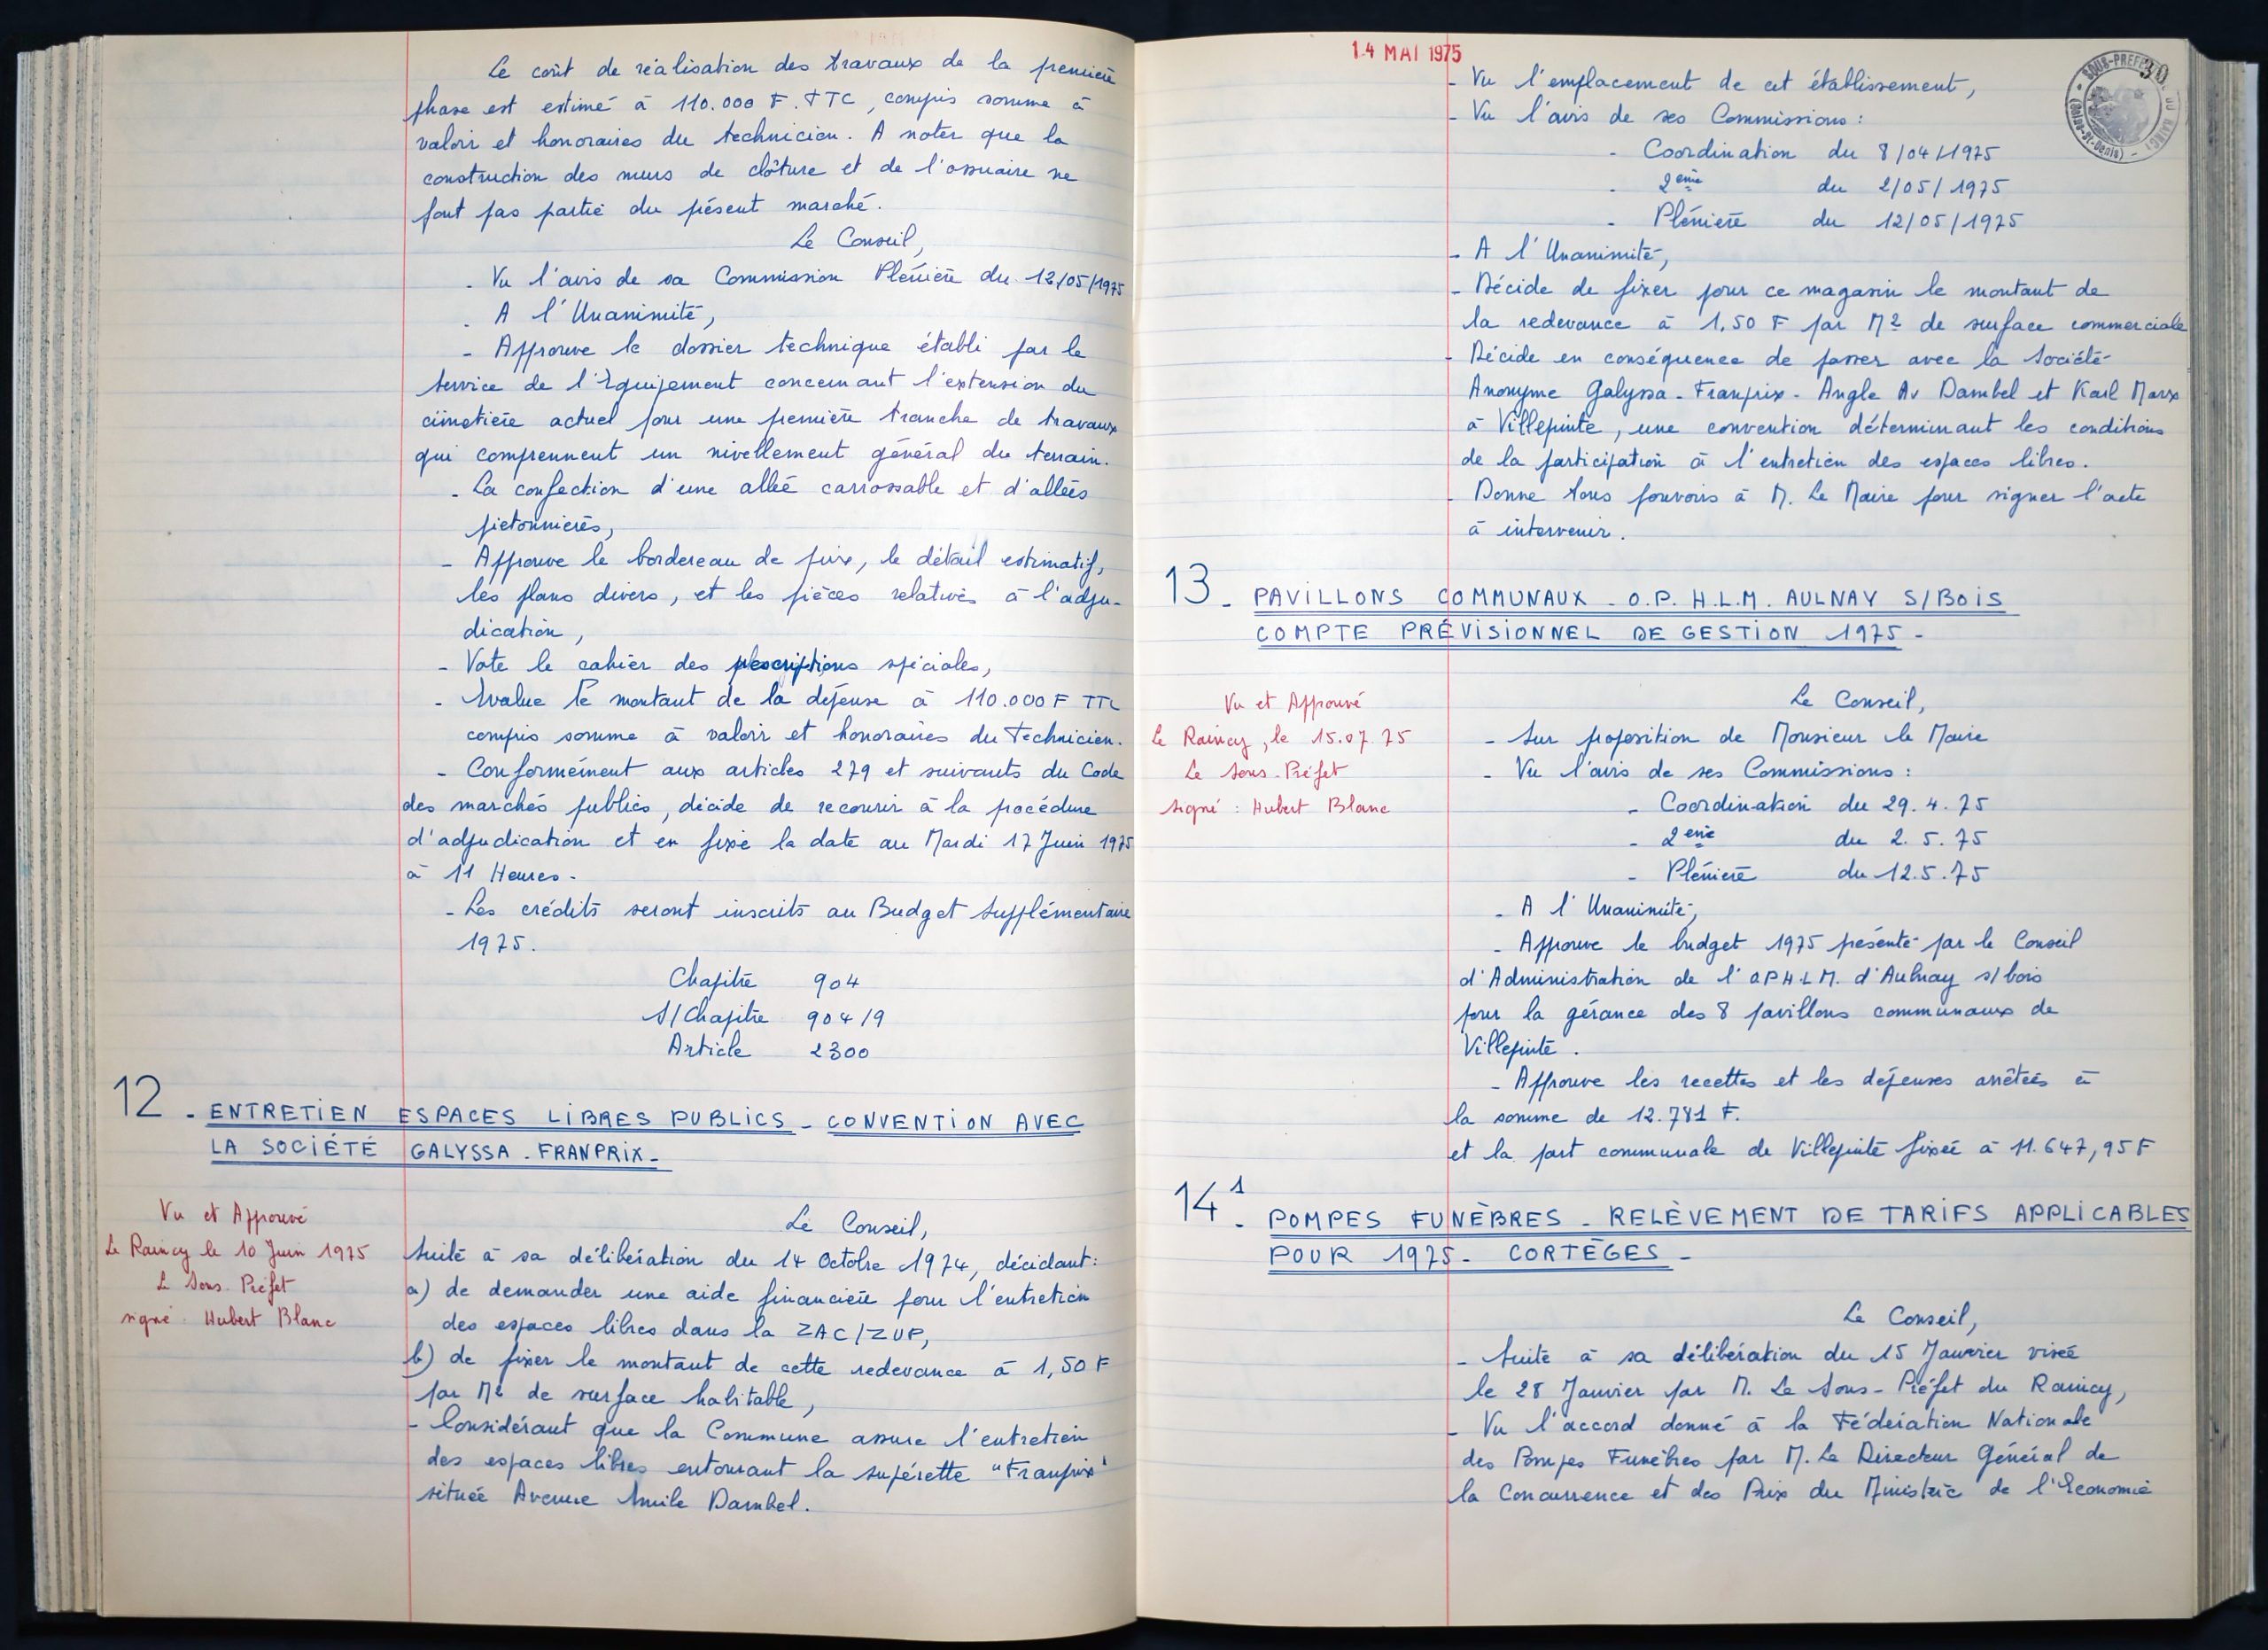 Le coût de réalisation des travaux de la première
phase est estimé à 110.000 F. TTC, compris somme à
valoir et honoraires du technicien. A noter que la
construction des murs de clôture et de l'ossuaire ne
font pas partie du présent marché.
Le Conseil,
- Vu l'avis de sa Commission Plénière du 12/05/1975
- A l'Unanimité,
- Approuve le dossier technique établi par le
Service de l'Equipement concernant l'extension du
cimetière actuel pour une première tranche de travaux
qui comprennent un nivellement général du terrain.
- La confection d'une allée carrossable et d'allées
piétonnières,
- Approuve le bordereau de prix, le détail estimatif,
les plans divers, et les pièces relatives à l'adju-
dication,
- Vote le cahier des prescriptions spéciales,
- Evalue le montant de la dépense à 110.000 F TTC
compris somme à valoir et honoraires du Technicien.
- Conformément aux articles 279 et suivants du Code
des marchés publics, décide de recourir à la procédure
d'adjudication et en fixe la date au Mardi 17 Juin 1975
à 11 Heures.
- Les crédits seront inscrits au Budget Supplémentaire
1975.
Chapitre 904
S/Chapitre 904/9
Article 2300
12 - ENTRETIEN ESPACES LIBRES PUBLICS - CONVENTION AVEC
LA SOCIÉTÉ GALYSSA - FRANPRIX -
Vu et Approuvé
Le Raincy le 10 Juin 1975
Le Sous. Préfet
signé : Hubert Blanc
Le Conseil,
Suite à sa délibération du 14 Octobre 1974, décidant :
a) de demander une aide financière pour l'entretien
des espaces libres dans la ZAC/ZUP,
b) de fixer le montant de cette redevance à 1,50 F
par M2 de surface habitable,
- Considérant que la Commune assure l'entretien
des espaces libres entourant la supérette "Franprix"
située Avenue Emile Dambel.
14 MAI 1975
SOUS-PREFECTURE DU RAINCY
(Seine-St-Denis)
30
- Vu l'emplacement de cet établissement,
- Vu l'avis de ses Commissions :
- Coordination du 8/04/1975
- 2eme du 2/05/1975
- Plénière du 12/05/1975
- A l'Unanimité,
- Décide de fixer pour ce magasin le montant de
la redevance à 1,50 F par M2 de surface commerciale
- Décide en conséquence de passer avec la Société
Anonyme Galyssa - Franprix - Angle Av Dambel et Karl Marx
à Villepinte, une convention déterminant les conditions
de la participation à l'entretien des espaces libres.
- Donne tous pouvoirs à M. Le Maire pour signer l'acte
à intervenir.
13 - PAVILLONS COMMUNAUX - O.P. H.L.M. AULNAY S/BOIS
COMPTE PRÉVISIONNEL DE GESTION 1975 -
Vu et Approuvé
Le Raincy, le 15.07.75
Le Sous-Préfet
signé : Hubert Blanc
Le Conseil,
- Sur proposition de Monsieur le Maire
- Vu l'avis de ses Commissions :
- Coordination du 29.4.75
- 2eme du 2.5.75
- Plénière du 12.5.75
- A l'Unanimité,
- Approuve le budget 1975 présenté par le Conseil
d'Administration de l'OPHLM. d'Aulnay s/bois
pour la gérance des 8 pavillons communaux de
Villepinte.
- Approuve les recettes et les dépenses arrêtées à
la somme de 12.781 F.
et la part communale de Villepinte fixée à 11.647,95 F
14 1 - POMPES FUNÈBRES - RELÈVEMENT DE TARIFS APPLICABLES
POUR 1975 - CORTÈGES -
Le Conseil,
- Suite à sa délibération du 15 Janvier visée
le 28 Janvier par M. Le Sous-Préfet du Raincy,
- Vu l'accord donné à la Fédération Nationale
des Pompes Funèbres par M. Le Directeur Général de
la Concurrence et des Prix du Ministère de l'Economie